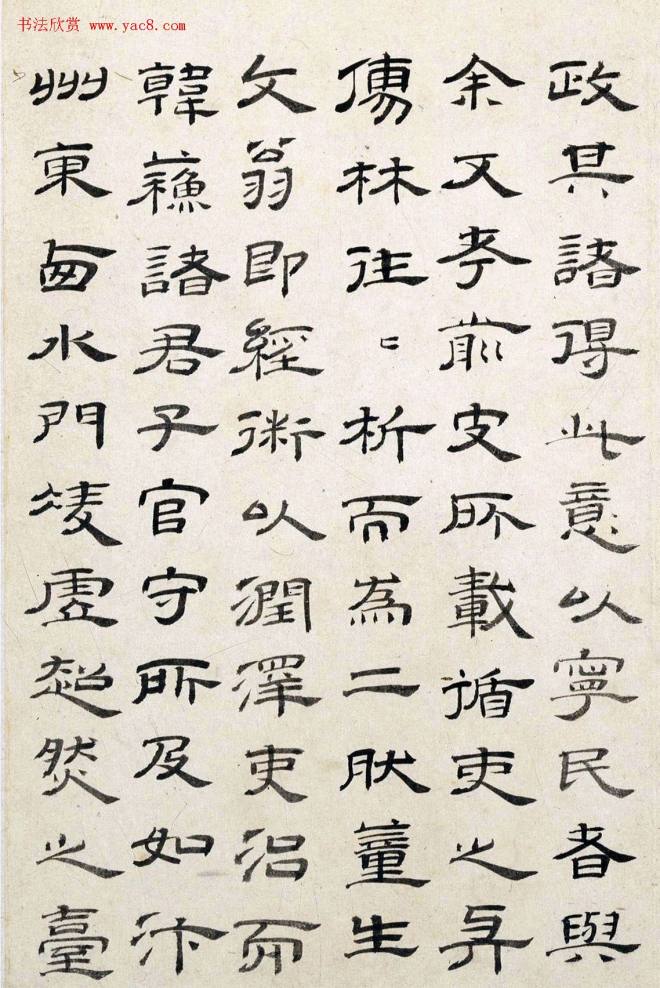 书法欣赏 www.yac8.com
政其諸得此意以寧民者與
余又考前史所載循吏之與
儒林往〻析而為二然董生
文翁即經術以潤澤吏治而
韓蘇諸君子官守所及如汴
州東西水門凌虛超然之臺